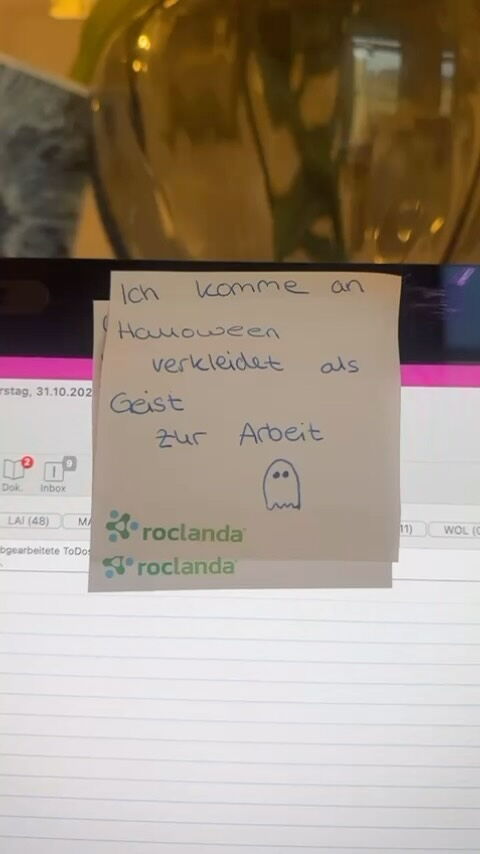 Ich komme an
Halloween
verkleidet als
Geist
zur Arbeit
roclanda
roclanda
rstag, 31.10.202
2
9
Dok.
Inbox
LAI (48)
11)
WOL
bgearbeitete ToDos